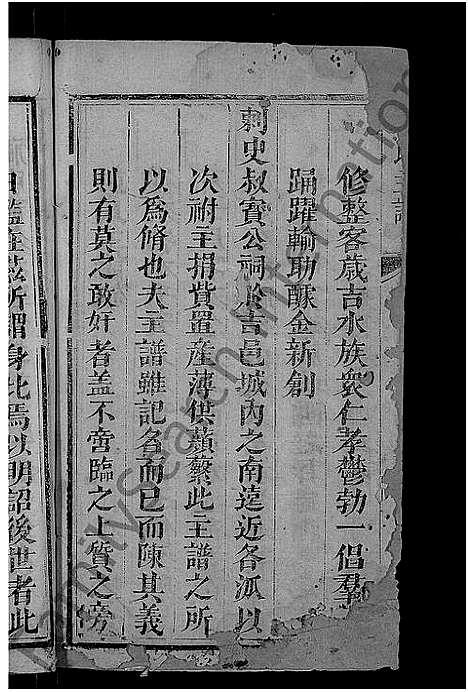 修整客歲吉水族衆仁孝鬱勃一倡羣
踊躍輸助醵金新創
刺史叔寳公祠於吉邑城內之南遠近各派以
次祔主捐貲置產薄供蘋蘩此主譜之所
以爲脩也夫主譜雖記名而已而陳其義
則有莫之敢奸者盖不啻臨之上質之旁
所謂身比焉以明詔後世者此